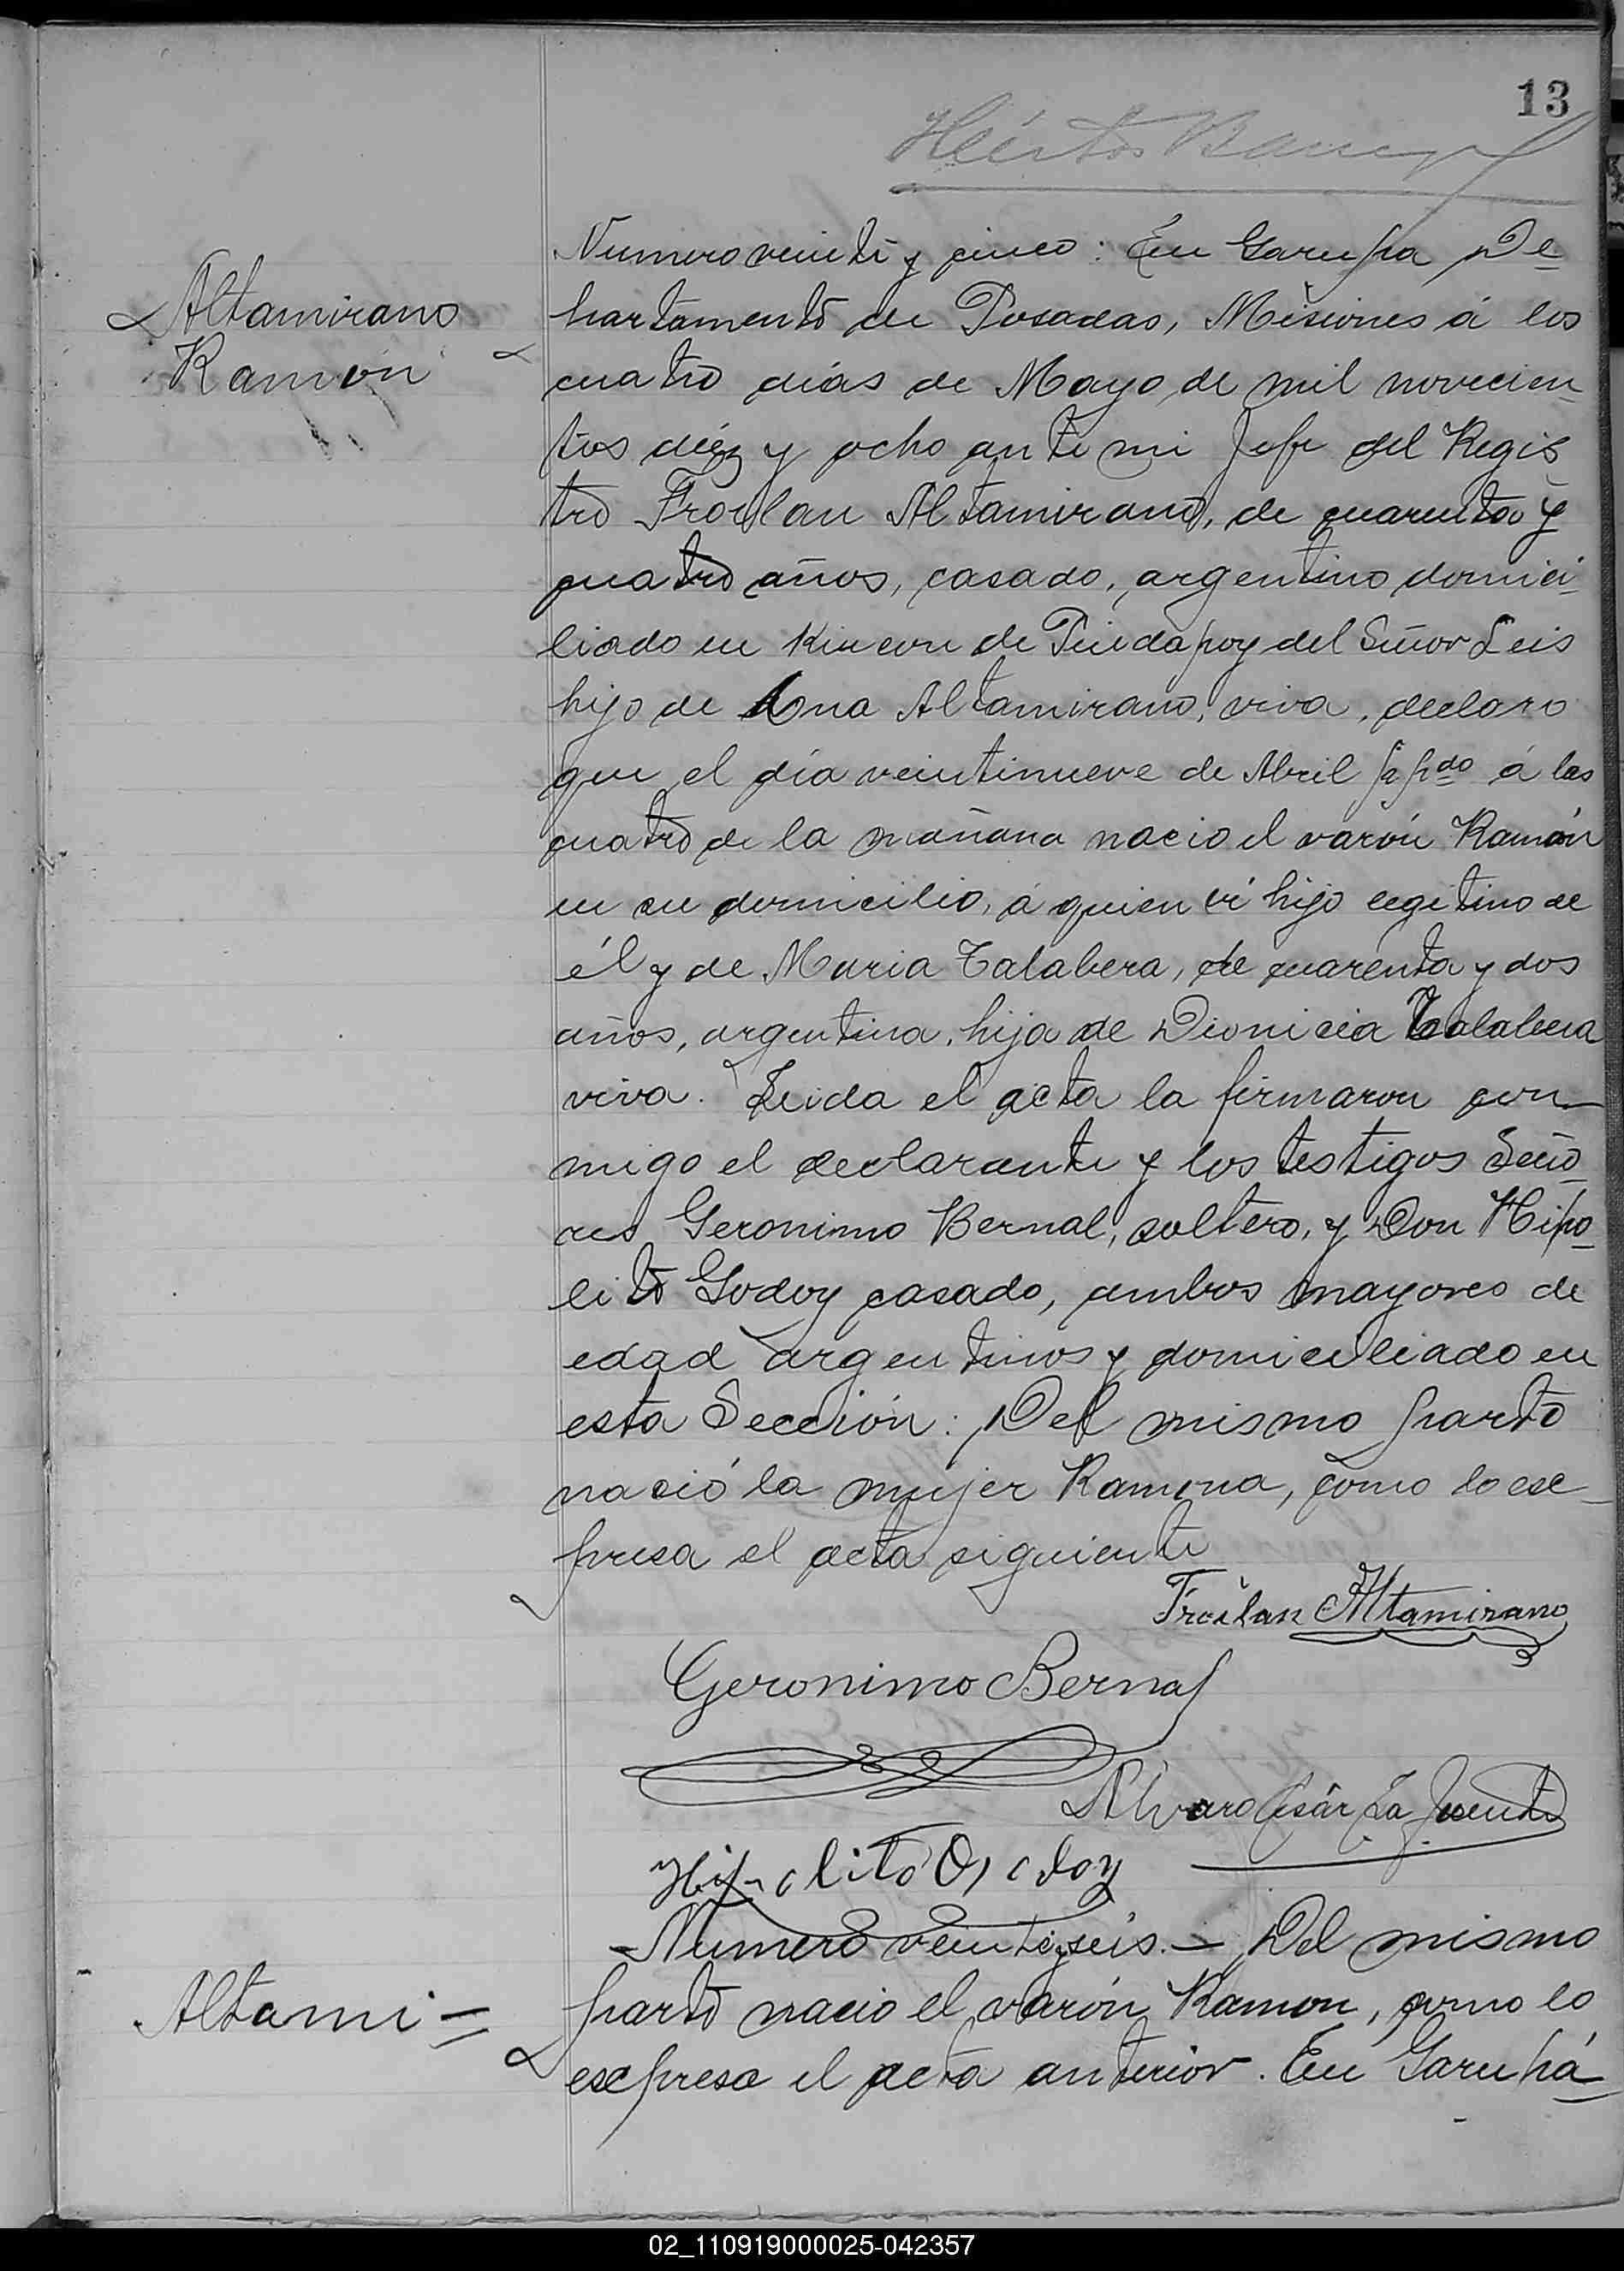 13
Numero veinti y cinco: En Garupa De
Altamirano
Ramón
partamento de Posadas, Misiones á los
cuatro días de Mayo de mil novecien
tos diéz y ocho ante mi Jefe del Regis
tro Froilan Altamirano, de cuarenta y
cuatro años, casado, argentino domici
liado en Rincon de Pindapoy del Señor Leis
hijo de Ana Altamirano, viva, declaro
que el día veintinueve de Abril ppdo á las
cuatro de la mañana nacio el varón Ramón
en su domicilio, á quien ví hijo legitimo de
él y de Maria Talabera, de cuarenta y dos
años, argentina, hija de Dionicia Talabera
viva. Leida el acta la firmaron con
migo el declarante y los testigos Seño
res Geronimo Bernal, soltero, y Don Hipo
lito Godoy casado, ambos mayores de
edad argentinos y domiciliado en
esta Sección: Del mismo parto
nació la mujer Ramona, como lo ex
presa el acta siguiente
Froilan Altamirano
Geronimo Bernal
Alvaro César La Fuente
Hipolito Godoy
Numero veinti y seis. — Del mismo
Altami =
parto nacio el varón Ramon, como lo
expresa el acta anterior. En Garupá
02_110919000025-042357